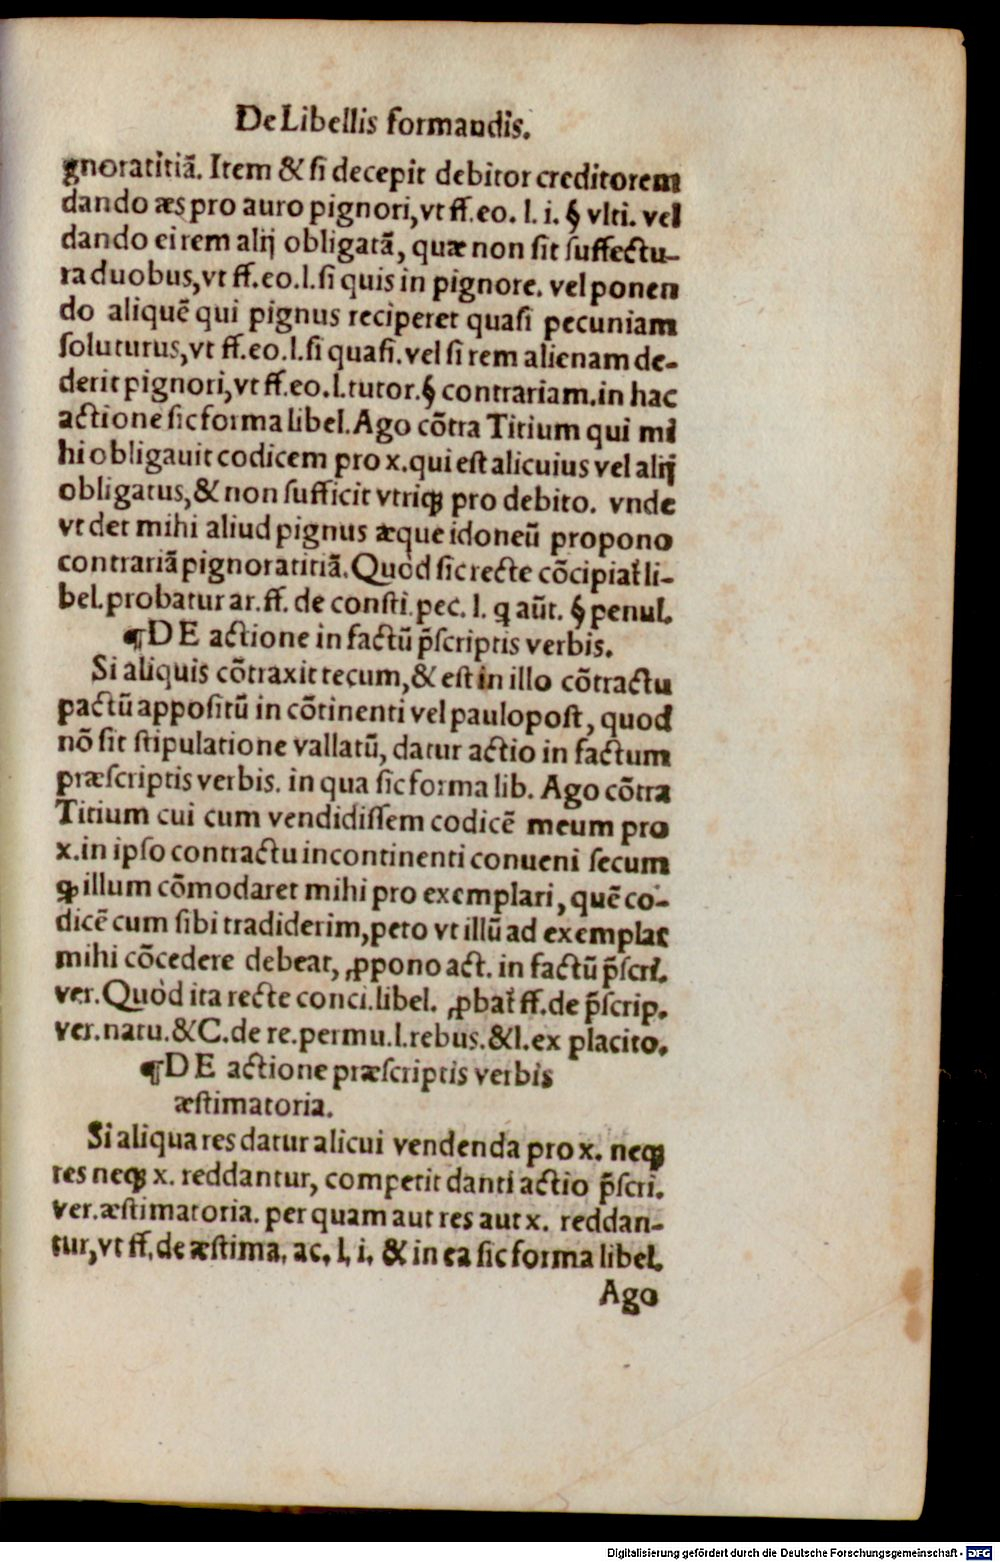 De Libellis formandis.
gnoratitiã. Item & ſi decepit debitor creditorem
dando æs pro auro pignori, vt ff. eo. l. i. § vlti. vel
dando ei rem alij obligatã, quæ non ſit ſuffectu-
ra duobus, vt ff. eo. l. ſi quis in pignore. vel ponen
do aliquẽ qui pignus reciperet quaſi pecuniam
ſoluturus, vt ff. eo. l. ſi quaſi. vel ſi rem alienam de-
derit pignori, vt ff. eo. l. tutor. § contrariam. in hac
actione ſic forma libel. Ago cõtra Titium qui mi
hi obligauit codicem pro x. qui eſt alicuius vel alij
obligatus, & non ſufficit vtriqꝫ pro debito. vnde
vt det mihi aliud pignus æque idoneũ propono
contrariã pignoratitiã. Quòd ſic recte cõcipiat᷑ li-
bel. probatur ar. ff. de conſti. pec. l. q aũt. § penul.
¶DE actione in factũ p̃ſcriptis verbis.
Si aliquis cõtraxit tecum, & eſt in illo cõtractu
pactũ appoſitũ in cõtinenti vel paulopoſt, quod
nõ ſit ſtipulatione vallatũ, datur actio in factum
præſcriptis verbis. in qua ſic forma lib. Ago cõtra
Titium cui cum vendidiſſem codicẽ meum pro
x. in ipſo contractu incontinenti conueni ſecum
ꝙ illum cõmodaret mihi pro exemplari, quẽ co-
dicẽ cum ſibi tradiderim, peto vt illũ ad exemplar
mihi cõcedere debeat, ꝓpono act. in factũ p̃ſcri.
ver. Quòd ita recte conci. libel. ꝓbat᷑ ff. de p̃ſcrip.
ver. natu. & C. de re. permu. l. rebus. & l. ex placito.
¶DE actione præſcriptis verbis
æſtimatoria.
Si aliqua res datur alicui vendenda pro x. neqꝫ
res neqꝫ x. reddantur, competit danti actio p̃ſcri.
ver. æſtimatoria. per quam aut res aut x. reddan-
tur, vt ff. de æſtima. ac. l. i. & in ea ſic forma libel.
Ago
Digitalisierung gefördert durch die Deutsche Forschungsgemeinschaft - DFG